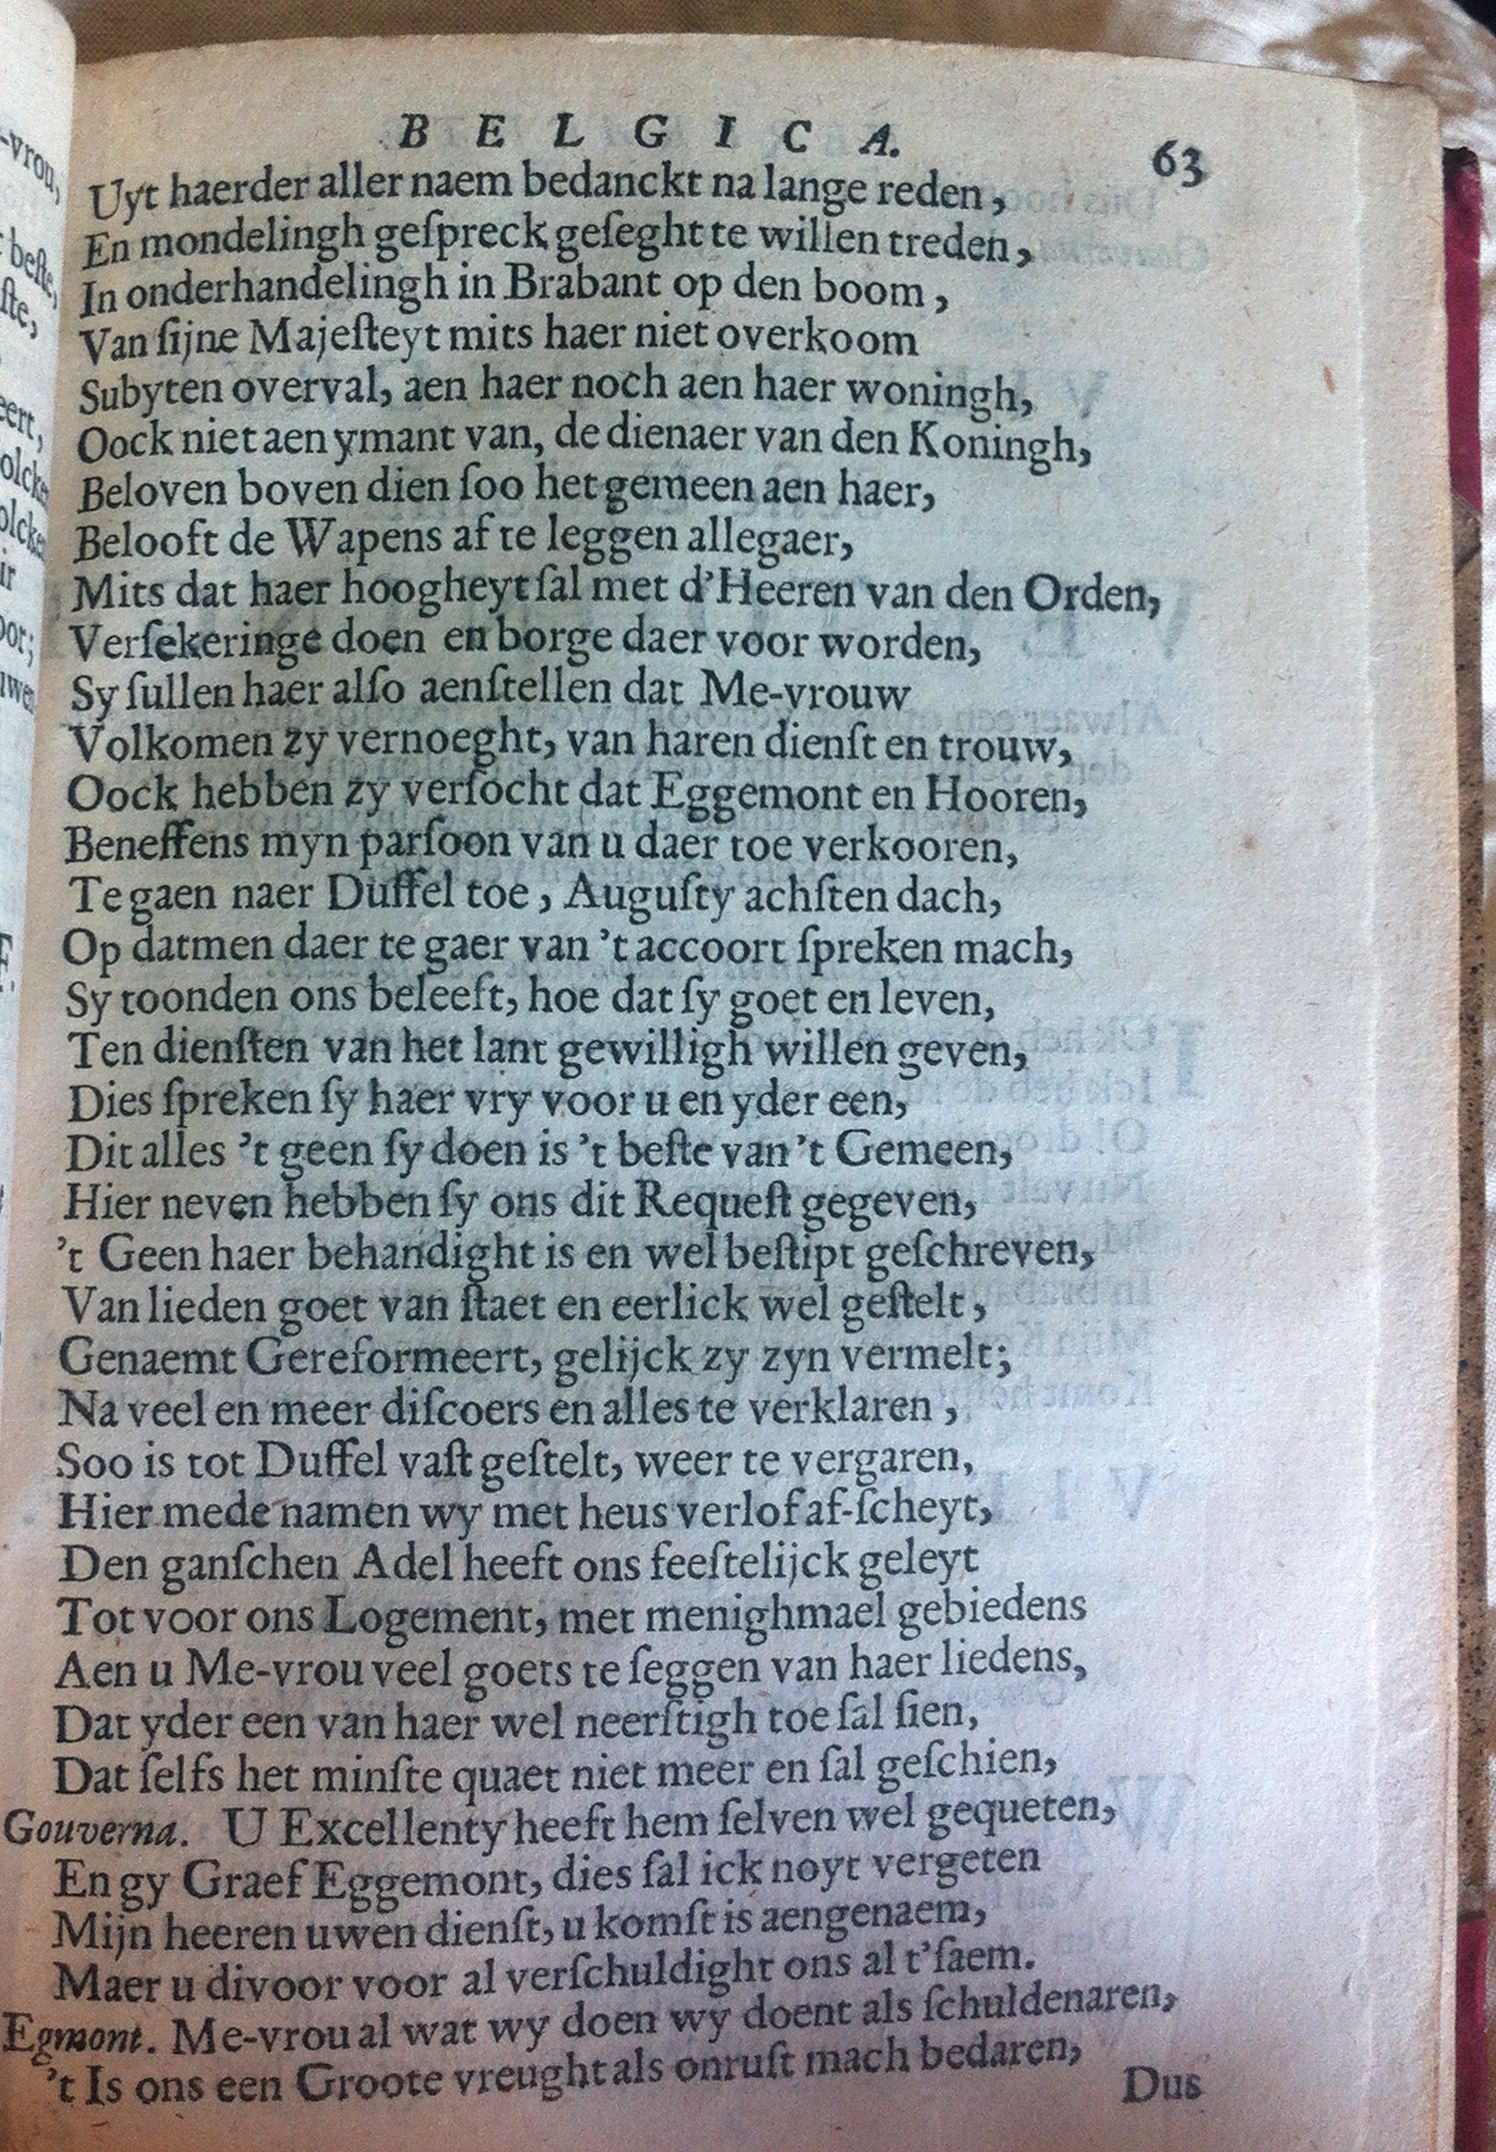 BELGICA. 63
Uyt haerder aller naem bedanckt na lange reden,
En mondelingh geſpreck geſeght te willen treden,
In onderhandelingh in Brabant op den boom,
Van ſijne Majeſteyt mits haer niet overkoom
Subyten overval, aen haer noch aen haer woningh,
Oock niet aen ymant van, de dienaer van den Koningh,
Beloven boven dien ſoo het gemeen aen haer,
Belooft de Wapens af te leggen allegaer,
Mits dat haer hoogheyt ſal met d'Heeren van den Orden,
Verſekeringe doen en borge daer voor worden,
Sy ſullen haer alſo aenſtellen dat Me-vrouw
Volkomen zy vernoeght, van haren dienſt en trouw,
Oock hebben zy verſocht dat Eggemont en Hooren,
Beneffens myn parſoon van u daer toe verkooren,
Te gaen naer Duffel toe, Auguſty achſten dach,
Op datmen daer te gaer van 't accoort ſpreken mach,
Sy toonden ons beleeft, hoe dat ſy goet en leven,
Ten dienſten van het lant gewilligh willen geven,
Dies ſpreken ſy haer vry voor u en yder een,
Dit alles 't geen ſy doen is 't beſte van 't Gemeen,
Hier neven hebben ſy ons dit Requeſt gegeven,
't Geen haer behandight is en wel beſtipt geſchreven,
Van lieden goet van ſtaet en eerlick wel geſtelt,
Genaemt Gereformeert, gelijck zy zyn vermelt;
Na veel en meer diſcoers en alles te verklaren,
Soo is tot Duffel vaſt geſtelt, weer te vergaren,
Hier mede namen wy met heus verlof af-ſcheyt,
Den ganſchen Adel heeft ons feeſtelijck geleyt
Tot voor ons Logement, met menighmael gebiedens
Aen u Me-vrou veel goets te ſeggen van haer liedens,
Dat yder een van haer wel neerſtigh toe ſal ſien,
Dat ſelfs het minſte quaet niet meer en ſal geſchien,
Gouverna. U Excellenty heeft hem ſelven wel gequeten,
En gy Graef Eggemont, dies ſal ick noyt vergeten
Mijn heeren uwen dienſt, u komſt is aengenaem,
Maer u divoor voor al verſchuldight ons al t'ſaem.
Egmont. Me-vrou al wat wy doen wy doent als ſchuldenaren,
't Is ons een Groote vreught als onruſt mach bedaren,
Dus